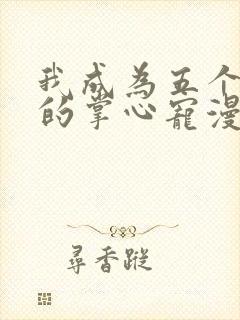 我成为五个
的掌心宠漫
寻香蹤